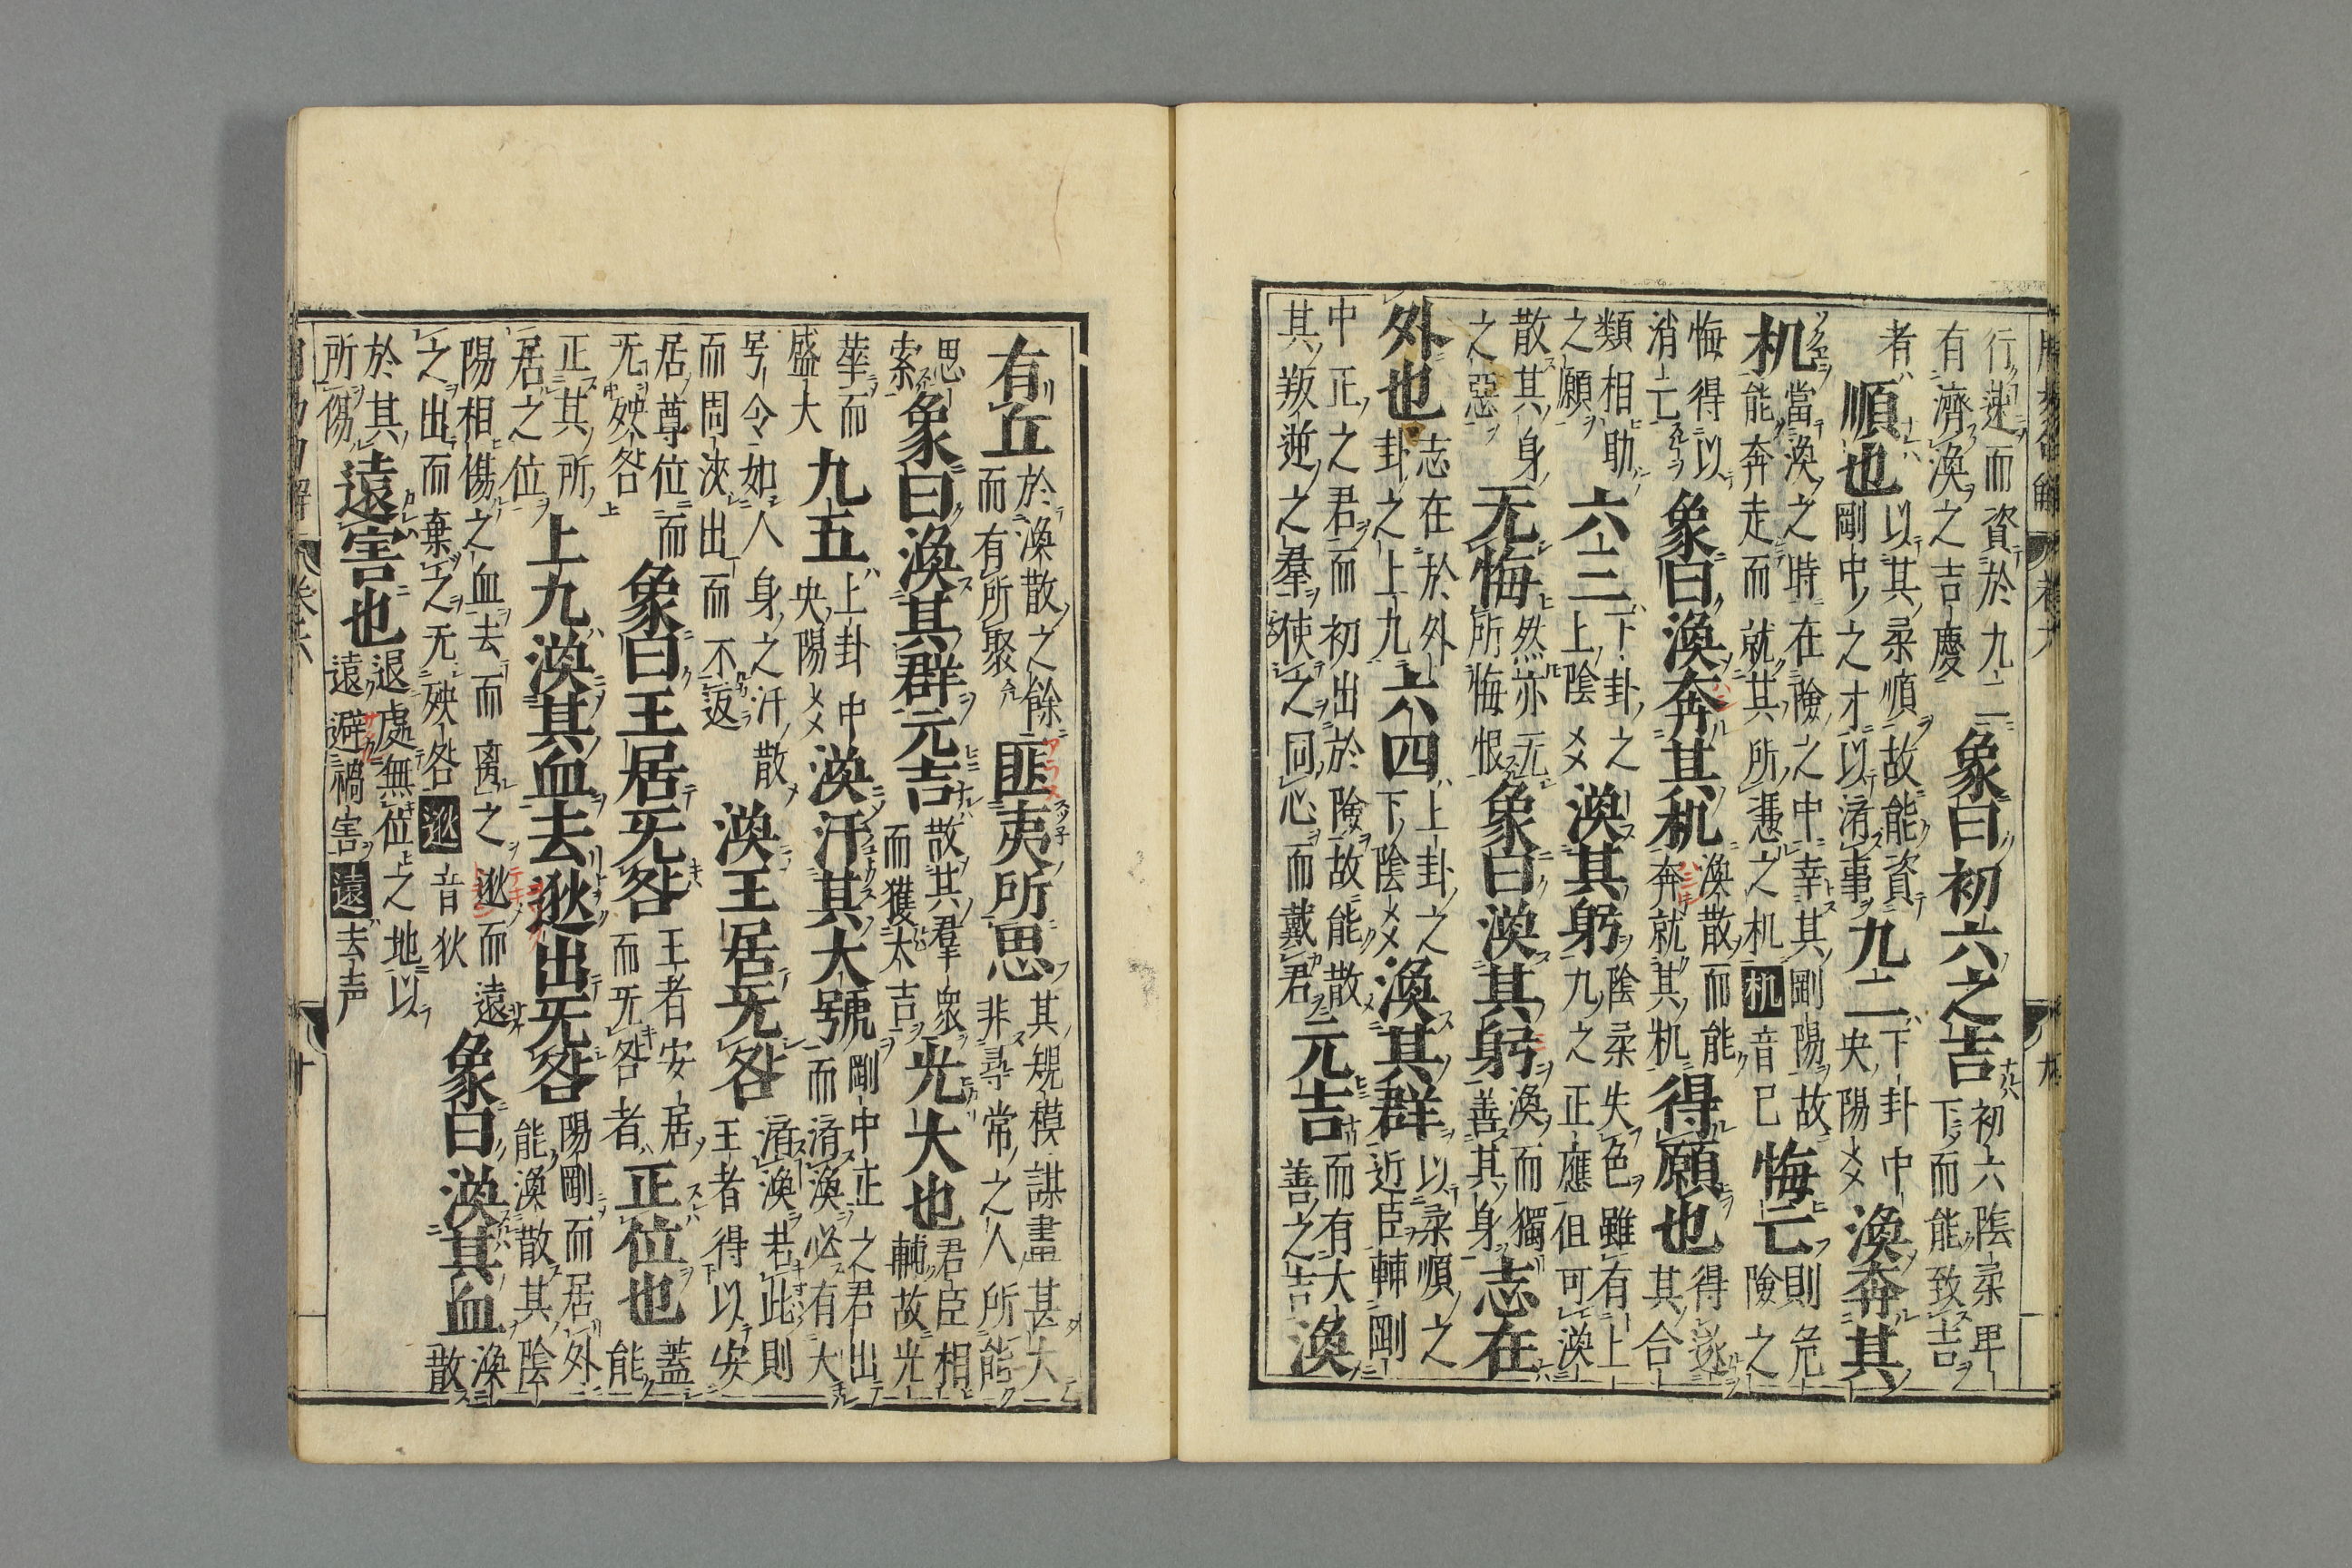 周易句解 卷六 九
行遯而資於九二有濟渙之吉慶象曰初六之吉初六陰柔卑下而能致吉
者順也以其柔順故能資剛中之才以濟事九二下卦中央陽爻渙奔其
机當渙之時在險之中幸其剛陽故能奔走而就其所憑之机机音己悔亡則危險之
悔得以消亡象曰渙奔其机渙散而能奔就其机得願也得遂其合
類相助之願六三下卦之上陰爻渙其躬陰柔失色雖有上九之正應但可渙
散其身之惡无悔然亦无所悔恨象曰渙其躬渙而獨善其身志在
外也志在於外卦之上九六四上卦之下陰爻渙其群以柔順之近臣輔剛
中正之君而初出於險故能散其叛逆之羣使之同心而戴君元吉而有大善之吉渙
有丘於渙散之餘而有所聚匪夷所思其規模謀畫甚大非尋常之人所能
思索象曰渙其群元吉散其羣衆而獲大吉光大也君臣相輔故光
華而盛大九五上卦中央陽爻渙汗其大號剛中正之君出而濟渙必有大
号令如人身之汗散而周浹出而不返渙王居无咎濟渙若此則王者得以安
居尊位而无殃咎象曰王居无咎王者安居而无咎者正位也蓋能
正其所居之位上九渙其血去逖出无咎陽剛而居外能渙散其陰
陽相傷之血去而离之逖而遠之出而棄之无殃咎逖音狄象曰渙其血渙散
於其所傷遠害也退處無位之地以遠避禍害遠去声
解 卷六 十